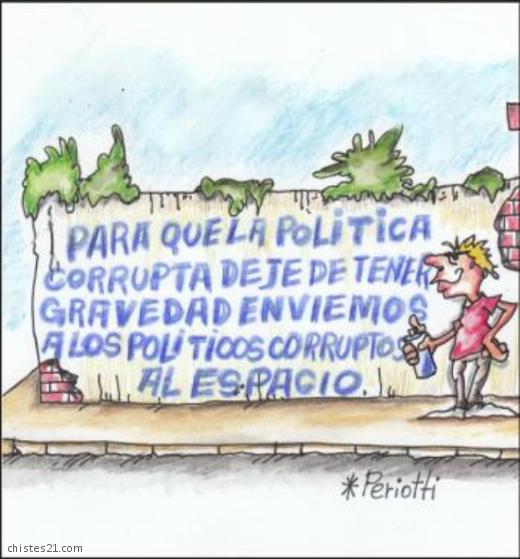 PARA QUE LA POLITICA
CORRUPTA DEJE DE TENER
GRAVEDAD ENVIEMOS
A LOS POLITICOS CORRUPTOS
AL ESPACIO.
*Periotti
chistes21.com